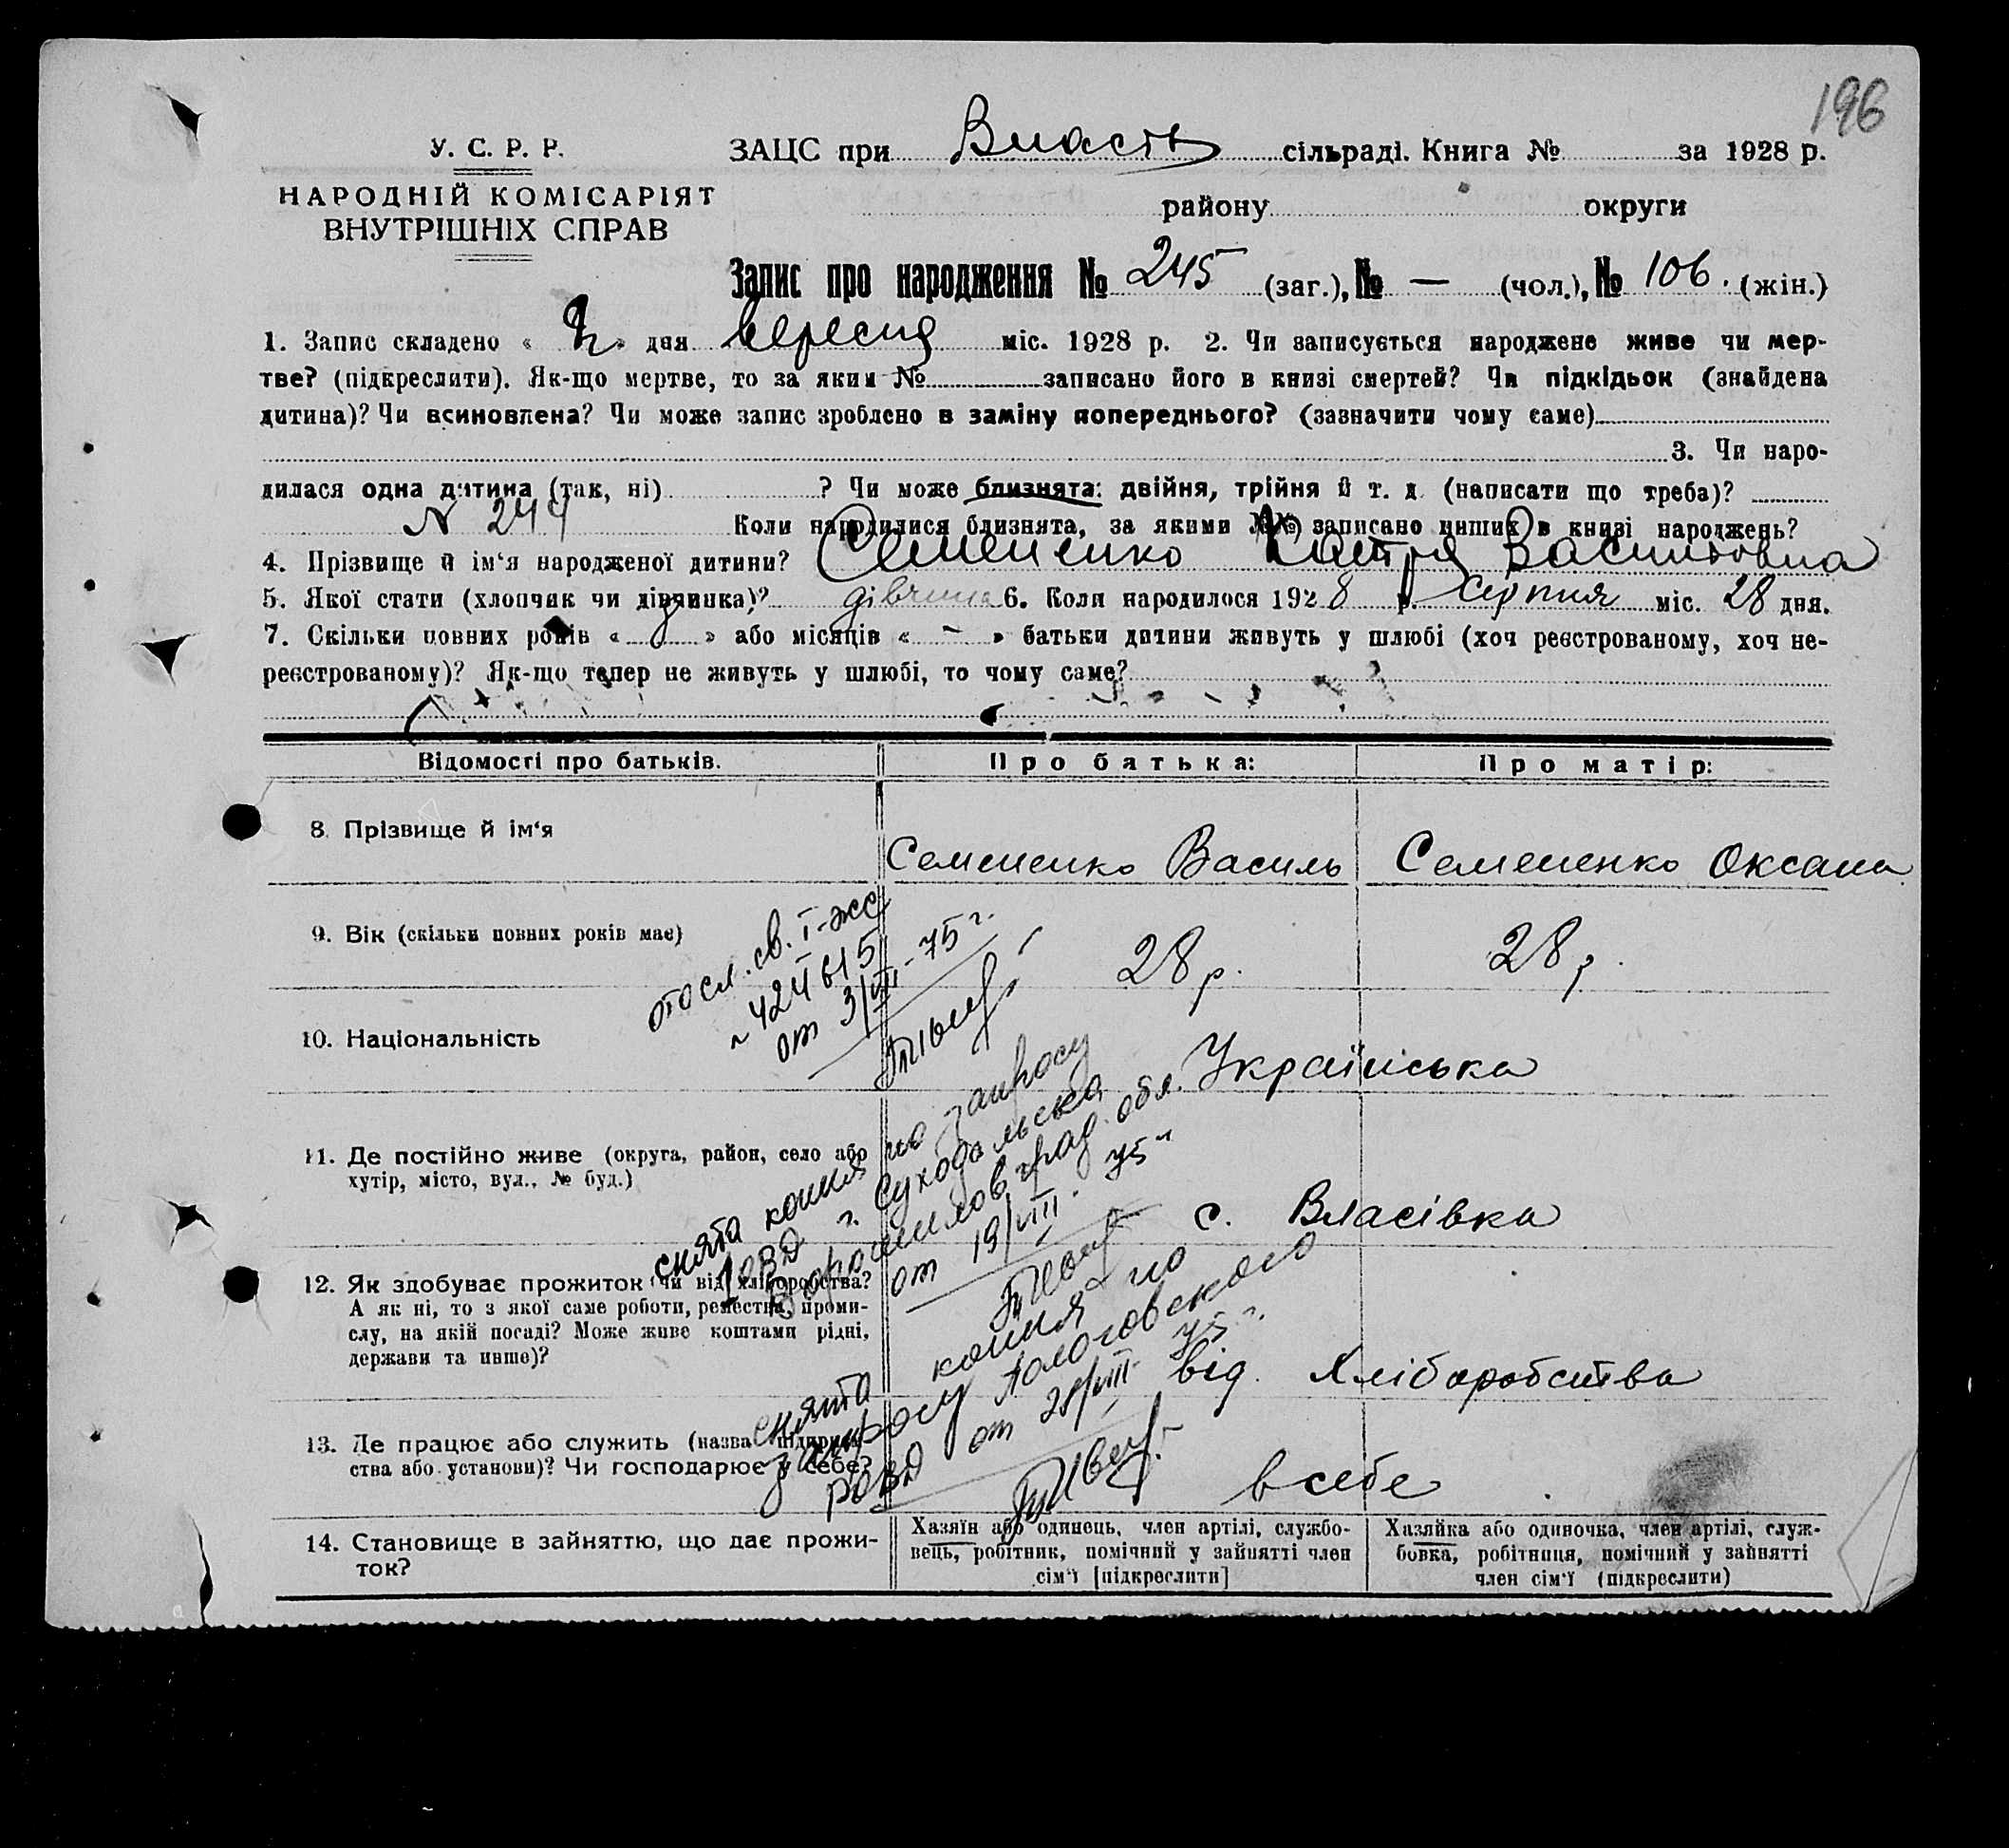 196
У. С. Р. Р.
НАРОДНІЙ КОМІСАРІЯТ
ВНУТРІШНІХ СПРАВ
ЗАЦС при сільраді. Книга № за 1928 р.
району округи
Запис про народження № 245 (заг.), № — (чол.), № 106. (жін.)
1. Запис складено « » дня вересня міс. 1928 р. 2. Чи записується народжене живе чи мер-
тве? (підкреслити). Як-що мертве, то за яким № записано його в книзі смертей? Чи підкідьок (знайдена
дитина)? Чи всиновлена? Чи може запис зроблено в заміну попереднього? (зазначити чому саме)
3. Чи наро-
дилася одна дитина (так, ні) ? Чи може близнята: двійня, трійня й т. д. (написати що треба)?
N 244 Коли народилися близнята, за якими №№ записано инших в книзі народжень?
4. Прізвище й ім‘я народженої дитини? Семененко Василівна
5. Якої статі (хлопчик чи дівчинка)? дівчина 6. Коли народилося 1928 р. серпня міс. 28 дня.
7. Скільки повних років « » або місяців « - » батьки дитини живуть у шлюбі (хоч реєстрованому, хоч не-
реєстрованому)? Як-що тепер не живуть у шлюбі, то чому саме?
Відомості про батьків. Про батька: Про матір:
8. Прізвище й ім‘я Семененко Василь Семененко Оксана
9. Вік (скільки повних років має) 28 р. 28 р.
10. Національність Українська
11. Де постійно живе (округа, район, село або
хутір, місто, вул., № буд.) с. Власівка
12. Як здобуває прожиток (чи від хліборобства?
А як ні, то з якої саме роботи, ремества, проми-
слу, на якій посаді? Може живе коштами рідні,
держави та инше)? від. Хліборобства
13. Де працює або служить (назва підприєм-
ства або установи)? Чи господарює у себе? в себе
14. Становище в зайняттю, що дає прожи-
ток?
Хазяїн або одинець, член артілі, службо-
вець, робітник, помічний у зайнятті член
сім‘ї [підкреслити]
Хазяйка або одиночка, член артілі, служ-
бовка, робітниця, помічний у зайнятті
член сім‘ї (підкреслити)
отосл. св. I-жс
от 3/VIII-75 г.
снята копия по запросу
г. Суходольска
Ворошиловград. обл.
от 19/VIII. 75 г
снята копия по
запросу Пологовского
РОВД от 28/VIII. 75 г.